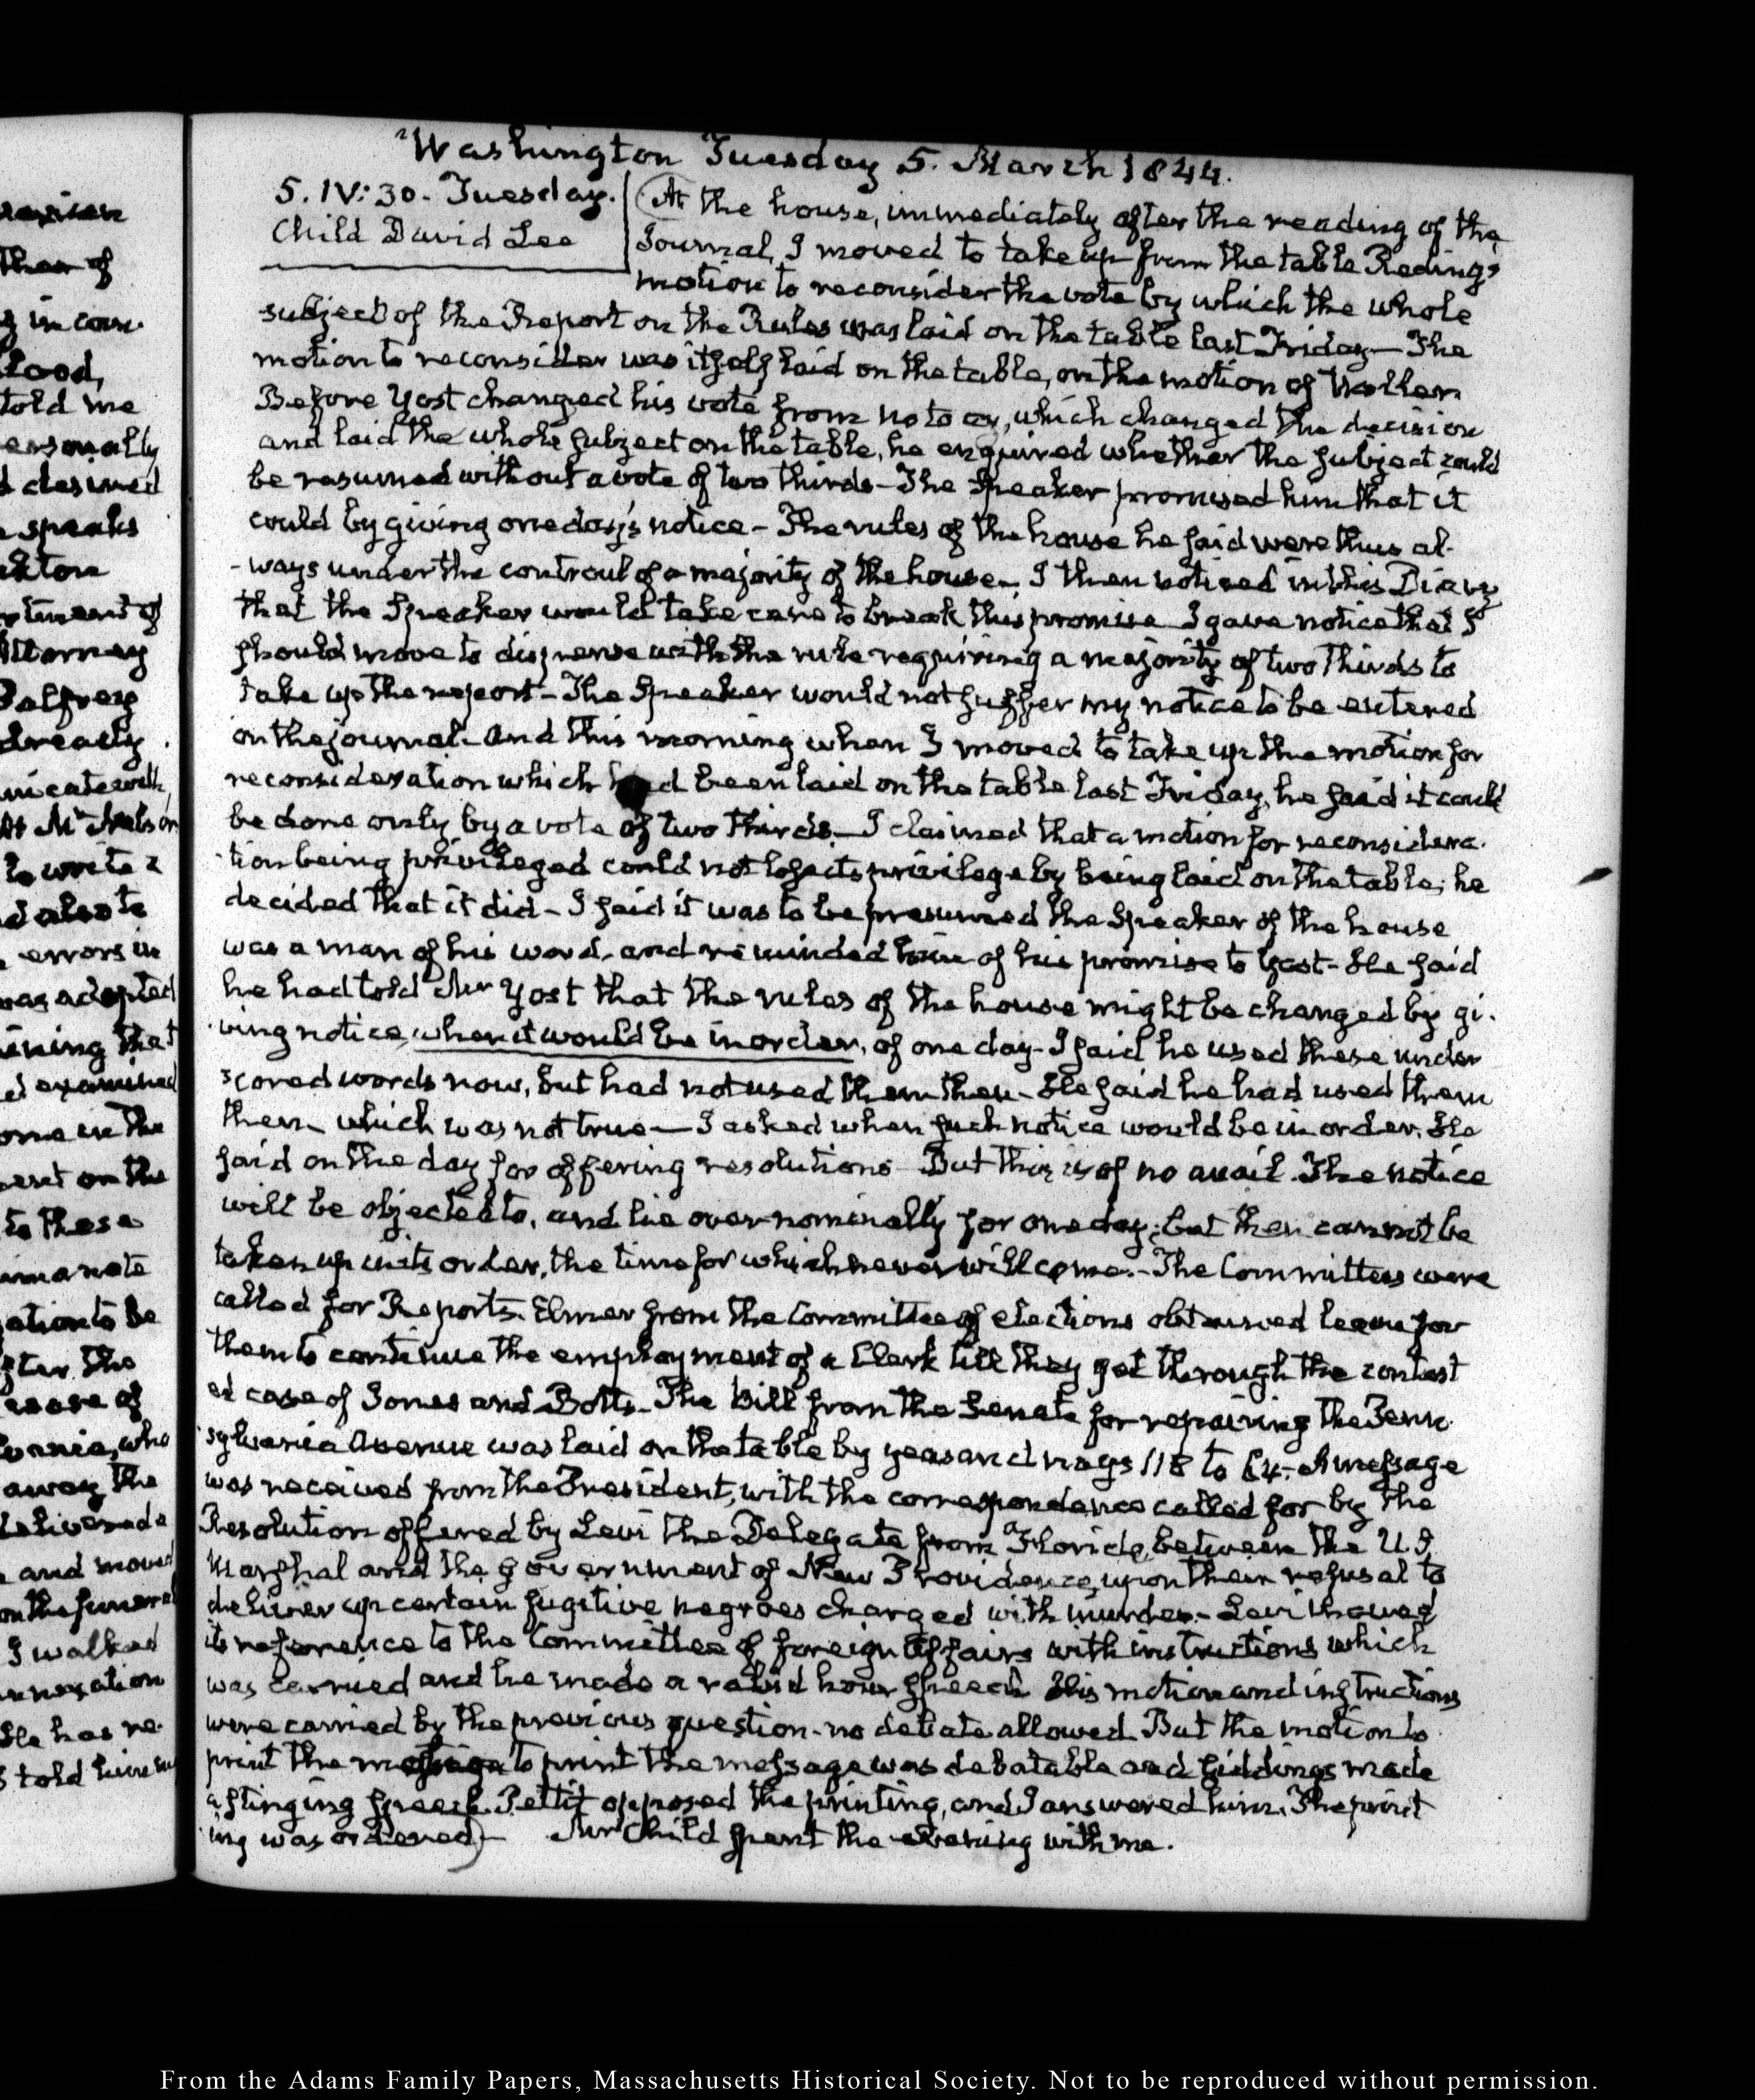 Washington Tuesday 5. March 1844.
5. IV:30. Tuesday.
Child David Lee
At the house, immediately after the reading of the
Journal, I moved to take up from the table Reding's
motion to reconsider the vote by which the whole
subject of the Report on the Rules was laid on the table last Friday — The
motion to reconsider was itself laid on the table, on the motion of Weller
Before Yost changed his vote from no to ay, which changed the decision
and laid the whole subject on the table, he enquired whether the subject could
be resumed without a vote of two thirds - The Speaker promised him that it
could by giving one day's notice - The rules of the house he said were thus al-
-ways under the controul of a majority of the house. I then noticed in this Diary
that the Speaker would take care to break this promise I gave notice that I
should move to dispense with the rule requiring a majority of two thirds to
take up the report - The Speaker would not suffer my notice to be entered
on the journal - and this morning when I moved to take up the motion for
reconsideration which had been laid on the table last Friday, he said it could
be done only by a vote of two thirds. - I claimed that a motion for reconsidera-
-tion being privileged could not lose its privilege by being laid on the table; he
decided that it did - I said it was to be presumed the Speaker of the house
was a man of his word, and reminded him of his promise to Yost - He said
he had told Mr Yost that the rules of the house might be changed by gi-
-ving notice, when it would be in order, of one day - I said he used these under
scored words now, but had not used them then - He said he had used them
then - which was not true — I asked when such notice would be in order. He
said on the day for offering resolutions - But this is of no avail. The notice
will be objected to, and lie over nominally for one day; but then cannot be
taken up in its order, the time for which never will come. - The Committees were
called for Reports. Elmer from the Committee of elections obtained leave for
them to continue the employment of a Clerk till they get through the contest
ed case of Jones and Botts - The bill from the Senate for repairing the Penn-
sylvania Avenue was laid on the table by yeas and nays 118 to 64. - A message
was received from the President, with the correspondence called for by the
Resolution offered by Levi the Delegate from Florida, between the U.S.
Marshal and the government of New Providence, upon their refusal to
deliver up certain fugitive negroes charged with murder - Levi moved
its reference to the Committee of foreign Affairs with instructions which
was carried and he made a rabid hour speech His motion and instructions
were carried by the previous question - no debate allowed. But the motion to
print the message to print the message was debatable and Giddings made
a stinging speech. Pettit opposed the printing, and I answered him. The print
ing was ordered) - Mr Child spent the evening with me.
From the Adams Family Papers, Massachusetts Historical Society. Not to be reproduced without permission.